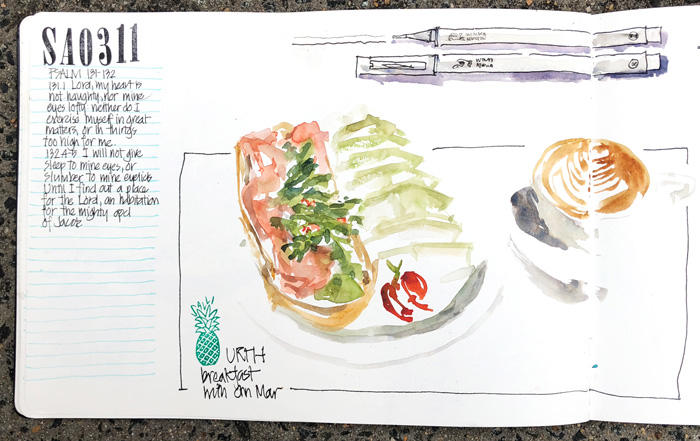 SA0311
PSALM 131-132
131.1 Lord, my heart is
not haughty, nor mine
eyes lofty neither do I
exercise myself in great
matters, or in things
too high for me.
132.4-5 I will not give
sleep to mine eyes, or
slumber to mine eyelids
Until I find out a place
for the Lord, an habitation
for the mighty
of Jacob
URTH
breakfast
with Mar